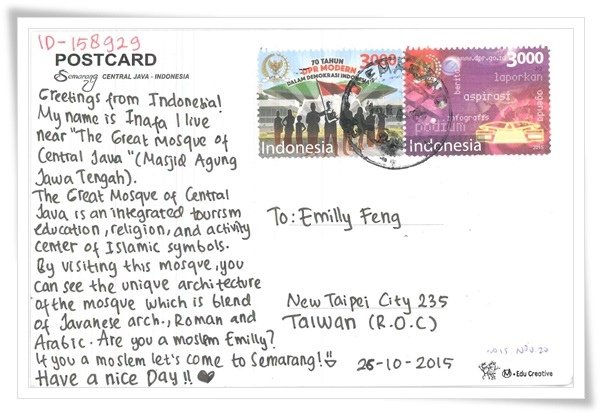 ID-158929
POSTCARD
Semarang CENTRAL JAVA - INDONESIA
Greetings from Indonesia!
My name is Inafa I live
near "The Great Mosque of
Central Java" (Masjid Agung
Jawa Tengah).
The Great Mosque of Central
Java is an integrated tourism
education, religion, and activity
center of Islamic symbols.
By visiting this mosque, you
can see the unique architecture
of the mosque which is blend
of Javanese arch., Roman and
Arabic. Are you a moslem Emilly?
If you a moslem let's come to Semarang!
Have a nice Day!!
70 TAHUN
DPR MODERN
DALAM DEMOKRASI INDONESIA
3000
Indonesia
www.dpr.go.id
3000
berita
laporkan
aspirasi
agenda
infografis
podium
Indonesia
2015
To: Emilly Feng
New Taipei City 235
Taiwan (R.O.C)
25-10-2015
2015 NOV 20
M-Edu Creative